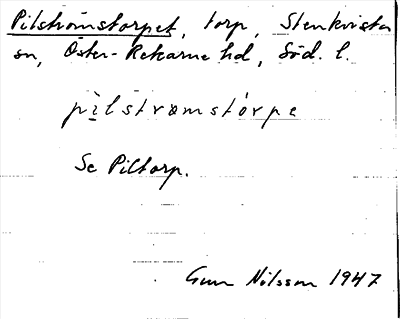 Pilströmstorpet, torp, Stenkvista
sn, Öster-Rekarne hd, Söd. l.
pilstrœmstórpe
Se Piltorp.
Gun Nilsson 1947